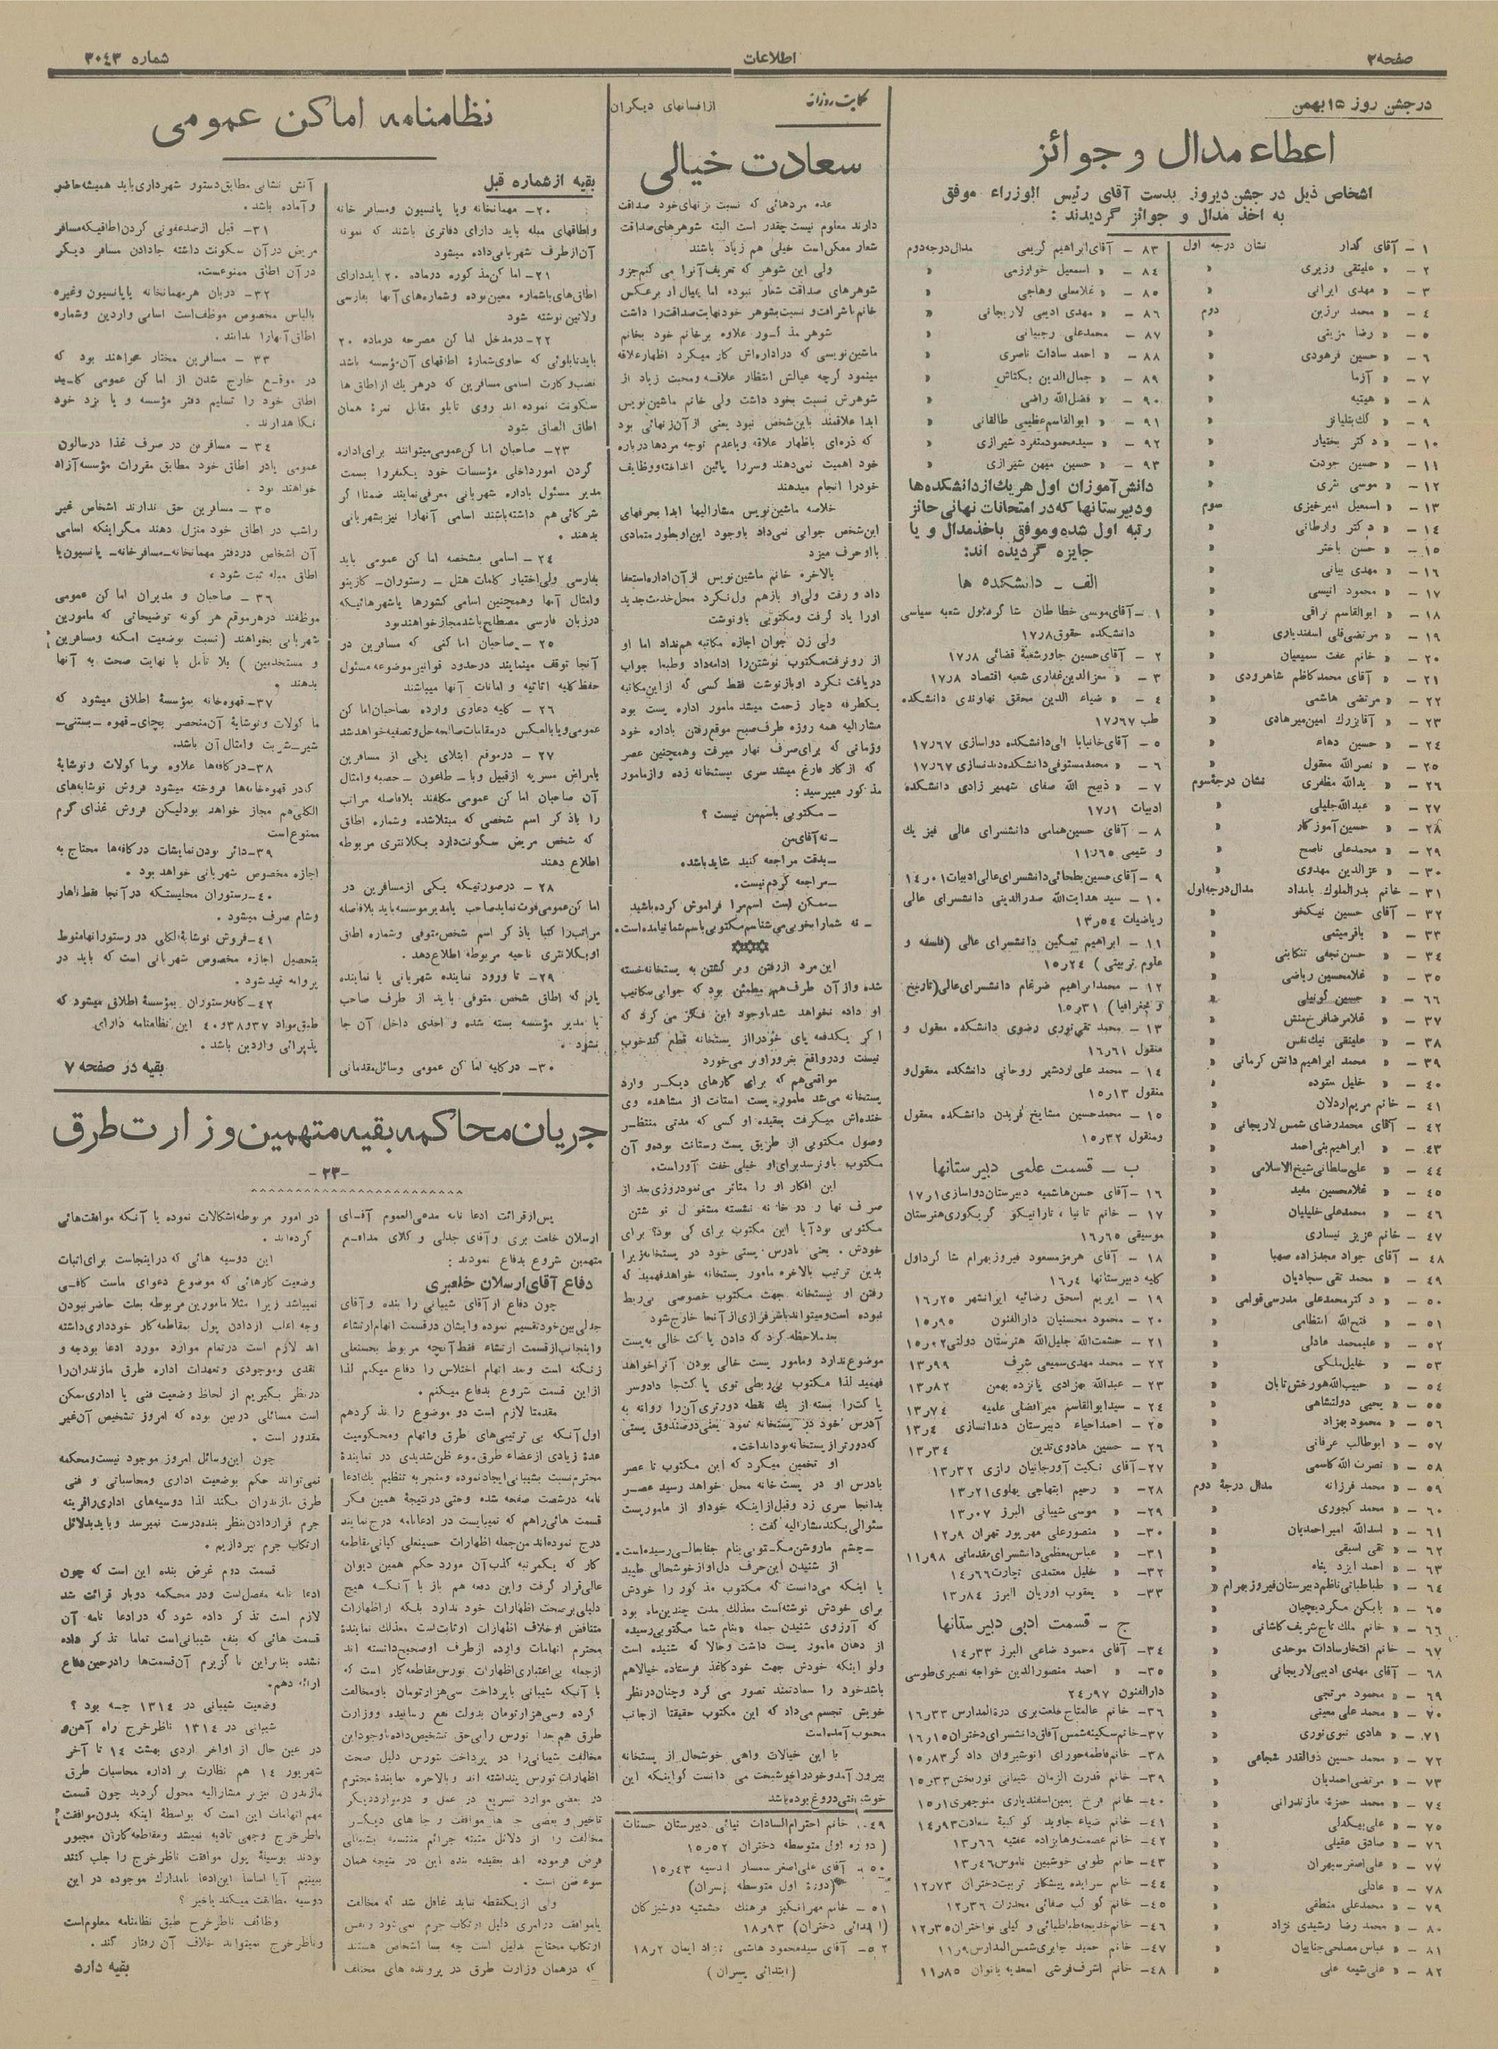 صفحه۲
اطلاعات
شماره ۳۰۴۳
در جشن روز ۱۵ بهمن
اعطاء مدال و جوائز
اشخاص ذیل در جشن دیروز بدست آقای رئیس الوزراء موفق
به اخذ مدال و جوائز گردیدند :
۱ – آقای گدار نشان درجه اول
۲ – » علینقی وزیری »
۳ – » مهدی ایرانی »
۴ – » محمد برزین » دوم
۵ – » رضا مزینی »
۶ – » حسین فرهودی »
۷ – » آزما »
۱۰ – » دکتر بختیار »
۱۱ – » حسین جودت »
۱۲ – » موسی نثری »
۱۳ – » اسمعیل امیرخیزی سوم
۱۴ – » دکتر وارطانی »
۱۶ – » مهدی بیانی »
۱۷ – » محمود انیسی »
۱۸ – » ابوالقاسم نراقی »
۱۹ – » مرتضی قلی اسفندیاری »
۲۰ – » خانم عفت سمیعیان »
۲۱ – » آقای محمدکاظم شاهرودی »
۲۲ – » مرتضی هاشمی »
۲۳ – » آقابزرك امین میرهادی »
۲۴ – » حسین دهاء »
۲۵ – » نصرالله معقول »
۲۶ – » یدالله مظفری نشان درجۀسوم
۲۷ – » عبدالله جلیلی »
۲۸ – » حسین آموزگار »
۲۹ – » محمدعلی ناصح »
۳۰ – » عزالدین مهدوی »
۳۱ – خانم بدرالملوك بامداد مدال درجه اول
۳۲ – آقای حسین نیکخو »
۳۴ – » حسن نجفی تنکابنی »
۳۵ – » غلامحسین ریاضی »
۳۸ – » علینقی نیك نفس »
۳۹ – » محمد ابراهیم دانش کرمانی »
۴۰ – » خلیل ستوده »
۴۱ – خانم مریم اردلان »
۴۲ – آقای محمدرضای شمس لاریجانی »
۴۳ – » ابراهیم بنی احمد »
۴۴ – » علی سلطانی شیخ الاسلامی »
۴۵ – » غلامحسین مفید »
۴۶ – » محمدعلی خلیلیان »
۴۷ – خانم عزیز نیساری »
۴۸ – آقای جواد مجدزاده صهبا »
۴۹ – » محمد تقی سجادیان »
۵۰ – » دکتر محمدعلی مدرسی قوامی »
۵۱ – » فتح الله انتظامی »
۵۲ – » علیمحمد عادلی »
۵۳ – » خلیل ملکی »
۵۴ – » حبیب الله هورخش تابان »
۵۵ – » یحیی دولتشاهی »
۵۶ – » محمود بهزاد »
۵۷ – » ابوطالب عرفانی »
۵۸ – » نصرت الله کاسمی »
۵۹ – » محمد فرزانه مدال درجۀ دوم
۶۰ – » محمد کجوری »
۶۱ – » اسدالله امیراحمدیان »
۶۳ – » احمد ایزد پناه »
۶۴ – » طباطبائی ناظم دبیرستان فیروز بهرام »
۶۶ – خانم ملك تاج شریف کاشانی »
۶۷ – خانم افتخارسادات موحدی »
۶۸ – آقای مهدی ادیبی لاریجانی »
۶۹ – » محمود مرتجی »
۷۰ – » محمد علی معینی »
۷۱ – » هادی نبوی نوری »
۷۲ – » محمد حسین ذوالقدر شجاعی »
۷۳ – » مرتضی احمدیان »
۷۴ – » محمد حمزۀ مازندرانی »
۷۵ – » علی بیگدلی »
۷۶ – » صادق عقیلی »
۷۷ – » علی اصغر سپهران »
۷۸ – » عادلی »
۷۹ – » محمدعلی منطقی »
۸۰ – » محمد رضا رشیدی نژاد »
۸۱ – » عباس مصلحی جنابیان »
۸۲ – » علی شیعه علی »
۸۳ – آقای ابراهیم کریمی مدال درجه دوم
۸۴ – » اسمعیل خوارزمی »
۸۵ – » غلامعلی وهاجی »
۸۶ – » مهدی ادیبی لاریجانی »
۸۷ – محمدعلی رجبیانی »
۸۸ – » احمد سادات ناصری »
۸۹ – » جمال الدین بکتاش »
۹۰ – » فضل الله راضی »
۹۱ – » ابوالقاسم عظیمی طالقانی »
۹۲ – » سیدمحمود متفرد شیرازی »
۹۳ – » حسین میهن شیرازی »
دانش آموزان اول هر یك از دانشکده ها
و دبیرستانها که در امتحانات نهائی حائز
رتبه اول شده و موفق باخذ مدال و یا
جایزه گردیده اند:
الف – دانشکده ها
۱ – آقای موسی خطاطان شاگرد اول شعبه سیاسی
دانشکده حقوق ۱۷ر۸
۲ – آقای حسین جاور شعبۀ قضائی ۱۷ر۸
۳ – » معزالدین غفاری شعبه اقتصاد ۱۷ر۸
۴ – » ضیاء الدین محقق نهاوندی دانشکده
طب ۱۷ر۶۷
۵ – آقای خانبابا الی دانشکده دواسازی ۱۷ر۶۷
۶ – » محمد مستوفی دانشکده دندسازی ۱۷ر۶۷
۷ – » ذبیح الله صفای شهمیر زادی دانشکده
ادبیات ۱۷ر۱
۸ – آقای حسین همامی دانشسرای عالی فیزیك
و شیمی ۱۱ر۶۵
۹ – آقای حسین بطحائی دانشسرای عالی ادبیات ۱۴ر۰۱
۱۰ – سید هدایت الله صدرالدینی دانشسرای عالی
ریاضیات ۱۳ر۵۴
۱۱ – ابراهیم تمکین دانشسرای عالی (فلسفه و
علوم تربیتی ) ۱۵ر۲۴
۱۲ – محمد ابراهیم ضرغام دانشسرای عالی (تاریخ
و جغرافیا ) ۱۵ر۳۱
۱۳ – محمد تقی نوری رضوی دانشکده معقول و
منقول ۱۶ر۶۱
۱۴ – محمد علی اردشیر روحانی دانشکده معقول و
منقول ۱۵ر۱۳
۱۵ – محمد حسین مشایخ فریدن دانشکده معقول
ومنقول ۱۵ر۳۲
ب – قسمت علمی دبیرستانها
۱۶ – آقای حسن هاشمیه دبیرستان دواسازی ۱۷ر۱
۱۷ – خانم تانیا ، تارانیکو گریگوری هنرستان
موسیقی ۱۶ر۶۵
۱۸ – آقای هرمز مسعود فیروز بهرام شاگرد اول
کلیه دبیرستانها ۱۶ر۴
۱۹ – ابریم اسحق رضائیه ایرانشهر ۱۶ر۲۵
۲۰ – محمود محسنیان دارالفنون ۱۵ر۹۵
۲۱ – حشمت الله جلیل الله هنرستان دولتی ۱۵ر۰۲
۲۲ – محمد مهدی سمیعی شرف ۱۳ر۹۹
۲۳ – عبدالله بهزادی پانزده بهمن ۱۳ر۸۲
۲۴ – سید ابوالقاسم میرافضلی علمیه ۱۳ر۷۴
۲۵ – احمد احیاء دبیرستان دندانسازی ۱۳ر۴
۲۶ – حسین هادوی تدین ۱۳ر۳۴
۲۷–آقای نیکیت آورجانیان رازی ۱۳ر۳۲
۲۸– » رحیم ابتهاجی پهلوی ۱۳ر۲۱
۲۹– » موسی شیبانی البرز ۱۳ر۰۷
۳۰– » منصورعلی مهرپور تهران ۱۲ر۹
۳۱– » عباس معظمی دانشسرای مقدماتی ۱۱ر۹۸
۳۲– » خلیل معتمدی تجارت ۱۴ر۶۶
۳۳– » یعقوب اوریان البرز ۱۳ر۸۴
ج – قسمت ادبی دبیرستانها
۳۴– آقای محمود ضاعی البرز ۱۴ر۳۳
۳۵– » احمد منصورالدین خواجه نصیری طوسی
دارالفنون ۲۴ر۹۷
۳۶– خانم عالمتاج خلعت بری درة المدارس ۱۶ر۳۳
۳۷–خانم سکینه شمس آفاق دانشسرای دختران ۱۶ر۱۵
۳۸–خانم فاطمه حورای انوشیروان دادگر ۱۵ر۸۳
۳۹– خانم قدرت الزمان شیبانی نوربخش ۱۵ر۳۳
۴۰– خانم فرخ یمین اسفندیاری منوچهری ۱۵ر۱
۴۱– خانم ضیاء جاوید کوکبیۀ سعادت ۱۴ر۹۳
۴۲– خانم عصمت وهابزاده عفتیه ۱۳ر۶۶
۴۳– خانم طوبی خوشبین ناموس ۱۳ر۴۶
۴۴– خانم سرایده پیشکار تربیت دختران ۱۲ر۷۳
۴۵– خانم کوکب صفائی مخدرات ۱۲ر۳۶
۴۶– خانم خدیجه طباطبائی و کیلی نواختران ۱۲ر۳۵
۴۷– خانم حمید جابری شمس المدارس ۱۱ر۹
۴۸– خانم اشرف قرشی اسعدیه بانوان ۱۱ر۸۵
حکایت روزانه
از افسانهای دیگران
سعادت خیالی
عده مردهائی که نسبت بزنهای خود صداقت
دارند معلوم نیست چقدر است البته شوهرهای صداقت
شعار ممکن است خیلی هم زیاد باشند
ولی این شوهر که تعریف آنرا می کنم جزو
شوهرهای صداقت شعار نبوده اما بعیال او برعکس
خانم باشرافت و نسبت بشوهر خود نهایت صداقت را داشت
شوهر مذکور علاوه بر خانم خود بخانم
ماشین نویسی که در اداره اش کار میکرد اظهار علاقه
مینمود گرچه عیالش انتظار علاقه و محبت زیاد از
شوهرش نسبت بخود داشت ولی خانم ماشین نویس
ابدا علاقمند باین شخص نبود یعنی از آن زنهائی بود
که ذره ای باظهار علاقه و یا عدم توجه مردها درباره
خود اهمیت نمی دهند و سر را پائین انداخته و وظایف
خود را انجام میدهند
خلاصه ماشین نویس مشارالیها ابدا بحرفهای
این شخص جوابی نمی داد باوجود این او بطور متمادی
با او حرف میزد
بالاخره خانم ماشین نویس از آن اداره استعفا
داد و رفت ولی او بازهم ول نکرد محل خدمت جدید
اورا یاد گرفت و مکتوبی باو نوشت
ولی زن جوان اجازه مکاتبه هم نداد اما او
از رو نرفت مکتوب نوشتن را ادامه داد و طبعا جواب
دریافت نکرد او باز نوشت فقط کسی که از این مکاتبه
یکطرفه دچار زحمت میشد مامور اداره پست بود
مشارالیه همه روزه طرف صبح موقع رفتن باداره خود
وزمانی که برای صرف نهار میرفت و همچنین عصر
که از کار فارغ میشد سری بپستخانه زده و از مامور
مذکور میپرسید :
– مکتوبی باسم من نیست ؟
– نه آقای من
– بدقت مراجعه کنید شاید باشد.
– مراجعه کردم نیست.
– ممکن است اسم مرا فراموش کرده باشید
– نه شما را بخوبی می شناسم مکتوبی باسم شما نیامده است.
این مرد از رفتن و برگشتن به پستخانه خسته
شده و از آن طرف هم مطمئن بود که جوابی بمکاتیب
او داده نخواهد شد باوجود این فکر می کرد که
اگر یکدفعه پای خود را از پستخانه قطع کند خوب
نیست و در واقع بغرور او بر می خورد
مواقعی هم که برای کارهای دیگر وارد
پستخانه می شد مامور پست از مشاهده وی
خنده اش میگرفت بعقیده او کسی که مدتی منتظر
وصول مکتوبی از طریق پست رستانت بوده و آن
مکتوب باو نرسد برای او خیلی خفت آور است.
این افکار او را متاثر می نمود روزی بعد از
صرف نهار و در خانه نشسته مشغول نوشتن
مکتوبی بود آیا این مکتوب برای کی بود؟ برای
خودش . یعنی بادرس پستی خود در پستخانه زیرا
بدین ترتیب بالاخره مامور پستخانه خواهد فهمید که
رفتن او بپستخانه جهت مکتوب خصوصی بی ربط
نبوده است و میتواند باسرفرازی از آنجا خارج شود
بعد ملاحظه کرد که دادن پاکت خالی به پست
موضوع ندارد و مامور پست خالی بودن آنرا خواهد
فهمید لذا مکتوب بی ربطی توی پاکت جا داد و سر
پاکت را بسته از یك نقطه دورتری آن را روانه به
آدرس خود در پستخانه نمود یعنی در صندوق پستی
که دورتر از پستخانه بود انداخت.
او تخمین میکرد که این مکتوب تا عصر
بادرس او در پست خانه محل خواهد رسید عصر
بدانجا سری زد و قبل از اینکه خود او از مامور پست
سئوالی بکند مشارالیه گفت :
– چشم ما روشن مکتوبی بنام جنابعالی رسیده است.
از شنیدن این حرف دل او از خوشحالی طپید
با اینکه می دانست که مکتوب مذکور را خودش
برای خودش نوشته است معذلك مدت چندین ماه بود
که آرزوی شنیدن جمله «بنام شما مکتوبی رسیده»
از دهان مامور پست داشت و حالا که شنیده است
ولو اینکه خودش جهت خود کاغذ فرستاده خیالا هم
باشد خود را سعادتمند تصور می کرد و چنان در نظر
خویش تجسم می داد که این مکتوب حقیقتا از جانب
محبوب آمده است
با این خیالات واهی خوشحال از پستخانه
بیرون آمد و خود را خوشبخت می دانست گو اینکه این
خوشبختی دروغ بوده باشد
۴۹– خانم احترام السادات نیاکی دبیرستان حسنات
(دوره اول متوسطه دختران ۱۵ر۵۲
۵۰– آقای علی اصغر سمسار انسیه ۱۵ر۴۳
(دورۀ اول متوسطه پسران)
۵۱– خانم مهرانگیز فرهنك حشمتیه دوشیزگان
(ابتدائی دختران) ۱۸ر۹۳
۵۲– آقای سید محمود هاشمی نژاد ایمان ۱۸ر۲
(ابتدائی پسران)
نظامنامه اماکن عمومی
بقیه از شماره قبل
۲۰– مهمانخانه و یا پانسیون و مسافر خانه
و اطاقهای مبله باید دارای دفاتری باشند که نمونه
آن از طرف شهربانی داده میشود
۲۱– اماکن مذکوره در ماده ۲۰ باید دارای
اطاق های باشماره معین بوده و شماره های آنها بفارسی
ولاتین نوشته شود
۲۲– در مدخل اماکن مصرحه در ماده ۲۰
باید تابلوئی که حاوی شمارۀ اطاقهای آن مؤسسه باشد
نصب و کارت اسامی مسافرین که در هر یك از اطاق ها
سکونت نموده اند روی تابلو مقابل نمرۀ همان
اطاق الصاق شود
۲۳– صاحبان اماکن عمومی میتوانند برای اداره
کردن امور داخلی مؤسسات خود یکنفر را بسمت
مدیر مسئول باداره شهربانی معرفی نمایند ضمنا اگر
شرکائی هم داشته باشند اسامی آنها را نیز بشهربانی
بدهند .
۲۴– اسامی مشخصه اماکن عمومی باید
بفارسی ولی اختیار کلمات هتل – رستوران – کازینو
و امثال آنها و همچنین اسامی کشورها یا شهرهائیکه
در زبان فارسی مصطلح باشد مجاز خواهند بود
۲۵– صاحبان اماکنی که مسافرین در
آنجا توقف مینمایند در حدود قوانین موضوعه مسئول
حفظ کلیه اثاثیه و امانات آنها میباشند
۲۶– کلیه دعاوی وارده بصاحبان اماکن
عمومی و یا بالعکس در مقامات صالحه حل و تصفیه خواهد شد
۲۷– در موقع ابتلای یکی از مسافرین
بامراض مسریه از قبیل وبا – طاعون – حصبه و امثال
آن صاحبان اماکن عمومی مکلفند بلافاصله مراتب
را با ذکر اسم شخصی که مبتلا شده و شماره اطاق
که شخص مریض سکونت دارد بکلانتری مربوطه
اطلاع دهند
۲۸– در صورتیکه یکی از مسافرین در
اماکن عمومی فوت نماید صاحب یا مدیر موسسه باید بلافاصله
مراتب را کتبا با ذکر اسم شخص متوفی و شماره اطاق
او بکلانتری ناحیه مربوطه اطلاع دهد.
۲۹– تا ورود نماینده شهربانی یا نماینده
پارکه اطاق شخص متوفی باید از طرف صاحب
یا مدیر مؤسسه بسته شده و احدی داخل آن جا
نشود .
۳۰– در کلیه اماکن عمومی وسائل مقدماتی
آتش نشانی مطابق دستور شهرداری باید همیشه حاضر
و آماده باشد .
۳۱– قبل از ضدعفونی کردن اطاقیکه مسافر
مریض در آن سکونت داشته جادادن مسافر دیگر
در آن اطاق ممنوعست.
۳۲– دربان هر مهمانخانه یا پانسیون وغیره
با لباس مخصوص موظف است اسامی واردین و شماره
اطاق آنها را بدانند.
۳۳– مسافرین مختار خواهند بود که
در موقع خارج شدن از اماکن عمومی کلید
اطاق خود را تسلیم دفتر مؤسسه و یا نزد خود
نگاهدارند .
۳۴– مسافرین در صرف غذا در سالون
عمومی یا در اطاق خود مطابق مقررات مؤسسه آزاد
خواهند بود .
۳۵– مسافرین حق ندارند اشخاص غیر
را شب در اطاق خود منزل دهند مگر اینکه اسامی
آن اشخاص در دفتر مهمانخانه – مسافرخانه – پانسیون یا
اطاق مبله ثبت شود .
۳۶– صاحبان و مدیران اماکن عمومی
موظفند در هر موقع هر گونه توضیحاتی که مامورین
شهربانی بخواهند (نسبت بوضعیت امکنه و مسافرین
و مستخدمین ) بلا تامل با نهایت صحت به آنها
بدهند
۳۷– قهوه خانه بمؤسسۀ اطلاق میشود که
ماکولات و نوشابۀ آن منحصر بچای – قهوه – بستنی –
شیر – شربت و امثال آن باشد.
۳۸– در کافه ها علاوه بر ماکولات و نوشابۀ
که در قهوه خانه ها فروخته میشود فروش نوشابه های
الکلی هم مجاز خواهد بود لیکن فروش غذای گرم
ممنوع است
۳۹–دائر بودن نمایشات در کافه ها محتاج به
اجازه مخصوص شهربانی خواهد بود .
۴۰–رستوران محلیستکه در آنجا فقط ناهار
و شام صرف میشود .
۴۱–فروش نوشابۀ الکلی در رستورانها منوط
بتحصیل اجازه مخصوص شهربانی است که باید در
پروانه قید شود .
۴۲–کافه رستوران بمؤسسۀ اطلاق میشود که
طبق مواد ۳۷ و ۳۸ و ۴۰ این نظامنامه دارای
پذیرائی واردین باشد .
بقیه در صفحه ۷
جریان محاکمه بقیه متهمین وزارت طرق
–۲۳–
پس از قرائت ادعا نامه مدعی العموم آقای
ارسلان خلعت بری و آقای جدلی وکلای مدافع
متهمین شروع بدفاع نمودند :
دفاع آقای ارسلان خلعبری
چون دفاع از آقای شیبانی را بنده و آقای
جدلی بین خود تقسیم نموده و ایشان در قسمت اتهام ارتشاء
و اینجانب از قسمت ارتشاء فقط آنچه مربوط بحسنعلی
زنگنه است و بعد اتهام اختلاس را دفاع میکنم لذا
از این قسمت شروع بدفاع میکنم .
مقدمتا لازم است دو موضوع را تذکر دهم
اول آنکه بی ترتیبی های طرق واتهام ومحکومیت
عدۀ زیادی از اعضاء طرق سوء ظن شدیدی در نماینده
محترم نسبت بشیبانی ایجاد نموده و منجر به تنظیم یك ادعا
نامه در شصت صفحه شده و حتی در نتیجۀ همین فکر
قسمت هائی را هم که نمیبایست در ادعانامه درج نمایند
درج نموده اند من جمله اظهارات حسینعلی کیانی مقاطعه
کار که یکمرتبه کذب آن مورد حکم همین دیوان
عالی قرار گرفت و این دفعه هم باز با آنکه هیچ
دلیلی بر صحت اظهارات خود ندارد بلکه از اظهارات
متناقض او خلاف اظهارات او ثابت است معذلك نماینده
محترم اتهامات وارده از طرف او را صحیح دانسته اند
از جمله بی اعتباری اظهارات نورس مقاطعه کار است که
با آنکه شیبانی با پرداخت سی هزار تومان باو مخالفت
کرده و سی هزار تومان بدولت نفع رسانیده و وزارت
طرق هم جدا نورس را بی حق تشخیص داده باوجود این
مخالفت شیبانی را در پرداخت بنورس دلیل صحت
اظهارات نورس پنداشته اند و بالاخره نمایندۀ محترم
در بعضی موارد تسریع در عمل و در موارد دیگر
تاخیر و بعضی جاها موافقت و جاهای دیگر
مخالفت را از دلائل مثبته جرائم منتسبه بشیبانی
فرض فرموده اند بعقیده بنده این در نتیجه همان
سوء ظن است .
ولی از یکنقطه نباید غافل شد که مخالفت
یا موافقت در امری دلیل ارتکاب جرم نمی شود و نفس
ارتکاب محتاج بدلیل است چه بسا اشخاص هستند
که در همان وزارت طرق در پرونده های مختلف
در امور مربوطه اشکالات نموده یا آنکه موافقت هائی
کرده اند .
این دوسیه هائی که در اینجاست برای اثبات
وضعیت کارهائی که موضوع دعوای ماست کافی
نمیباشد زیرا مثلا مامورین مربوطه بعلت حاضر نبودن
وجه اغلب از دادن پول بمقاطعه کار خودداری داشته
اند لازم است در تمام موارد مورد ادعا بودجه و
نقدی و موجودی و تعهدات اداره طرق مازندران را
در نظر بگیریم از لحاظ وضعیت فنی یا اداری ممکن
است مسائلی در بین بوده که امروز تشخیص آن غیر
مقدور است .
چون این وسائل امروز موجود نیست و محکمه
نمی تواند حکم بوضعیت اداری و محاسباتی و فنی
طرق مازندران بکند لذا دوسیه های اداری را قرینه
جرم قرار دادن بنظر بنده درست نمیرسد و باید بدلائل
ارتکاب جرم بپردازیم .
قسمت دوم غرض بنده این است که چون
ادعا نامه مفصل است و در محکمه دوبار قرائت شد
لازم است تذکر داده شود که در ادعا نامه آن
قسمت هائی که بنفع شیبانی است تماما تذکر داده
نشده بنابر این ناگزیرم آن قسمت ها را در حین دفاع
ارائه دهم.
وضعیت شیبانی در ۱۳۱۴ چه بود ؟
شیبانی در ۱۳۱۴ ناظر خرج راه آهن و
در عین حال از اواخر اردی بهشت ۱۴ تا آخر
شهریور ۱۴ هم نظارت بر اداره محاسبات طرق
مازندران نیز بر مشارالیه محول گردید چون قسمت
مهم اتهامات این است که بواسطۀ اینکه بدون موافقت
ناظر خرج وجهی تادیه نمیشد و مقاطعه کاران مجبور
بودند بوسیلۀ پول موافقت ناظر خرج را جلب کنند
ببینیم آیا اساسا این ادعا با مدارك موجوده در این
دوسیه مطابقت میکند یا خیر ؟
وظائف ناظر خرج طبق نظامنامه معلوم است
و ناظر خرج نمیتواند خلاف آن رفتار کند .
بقیه دارد